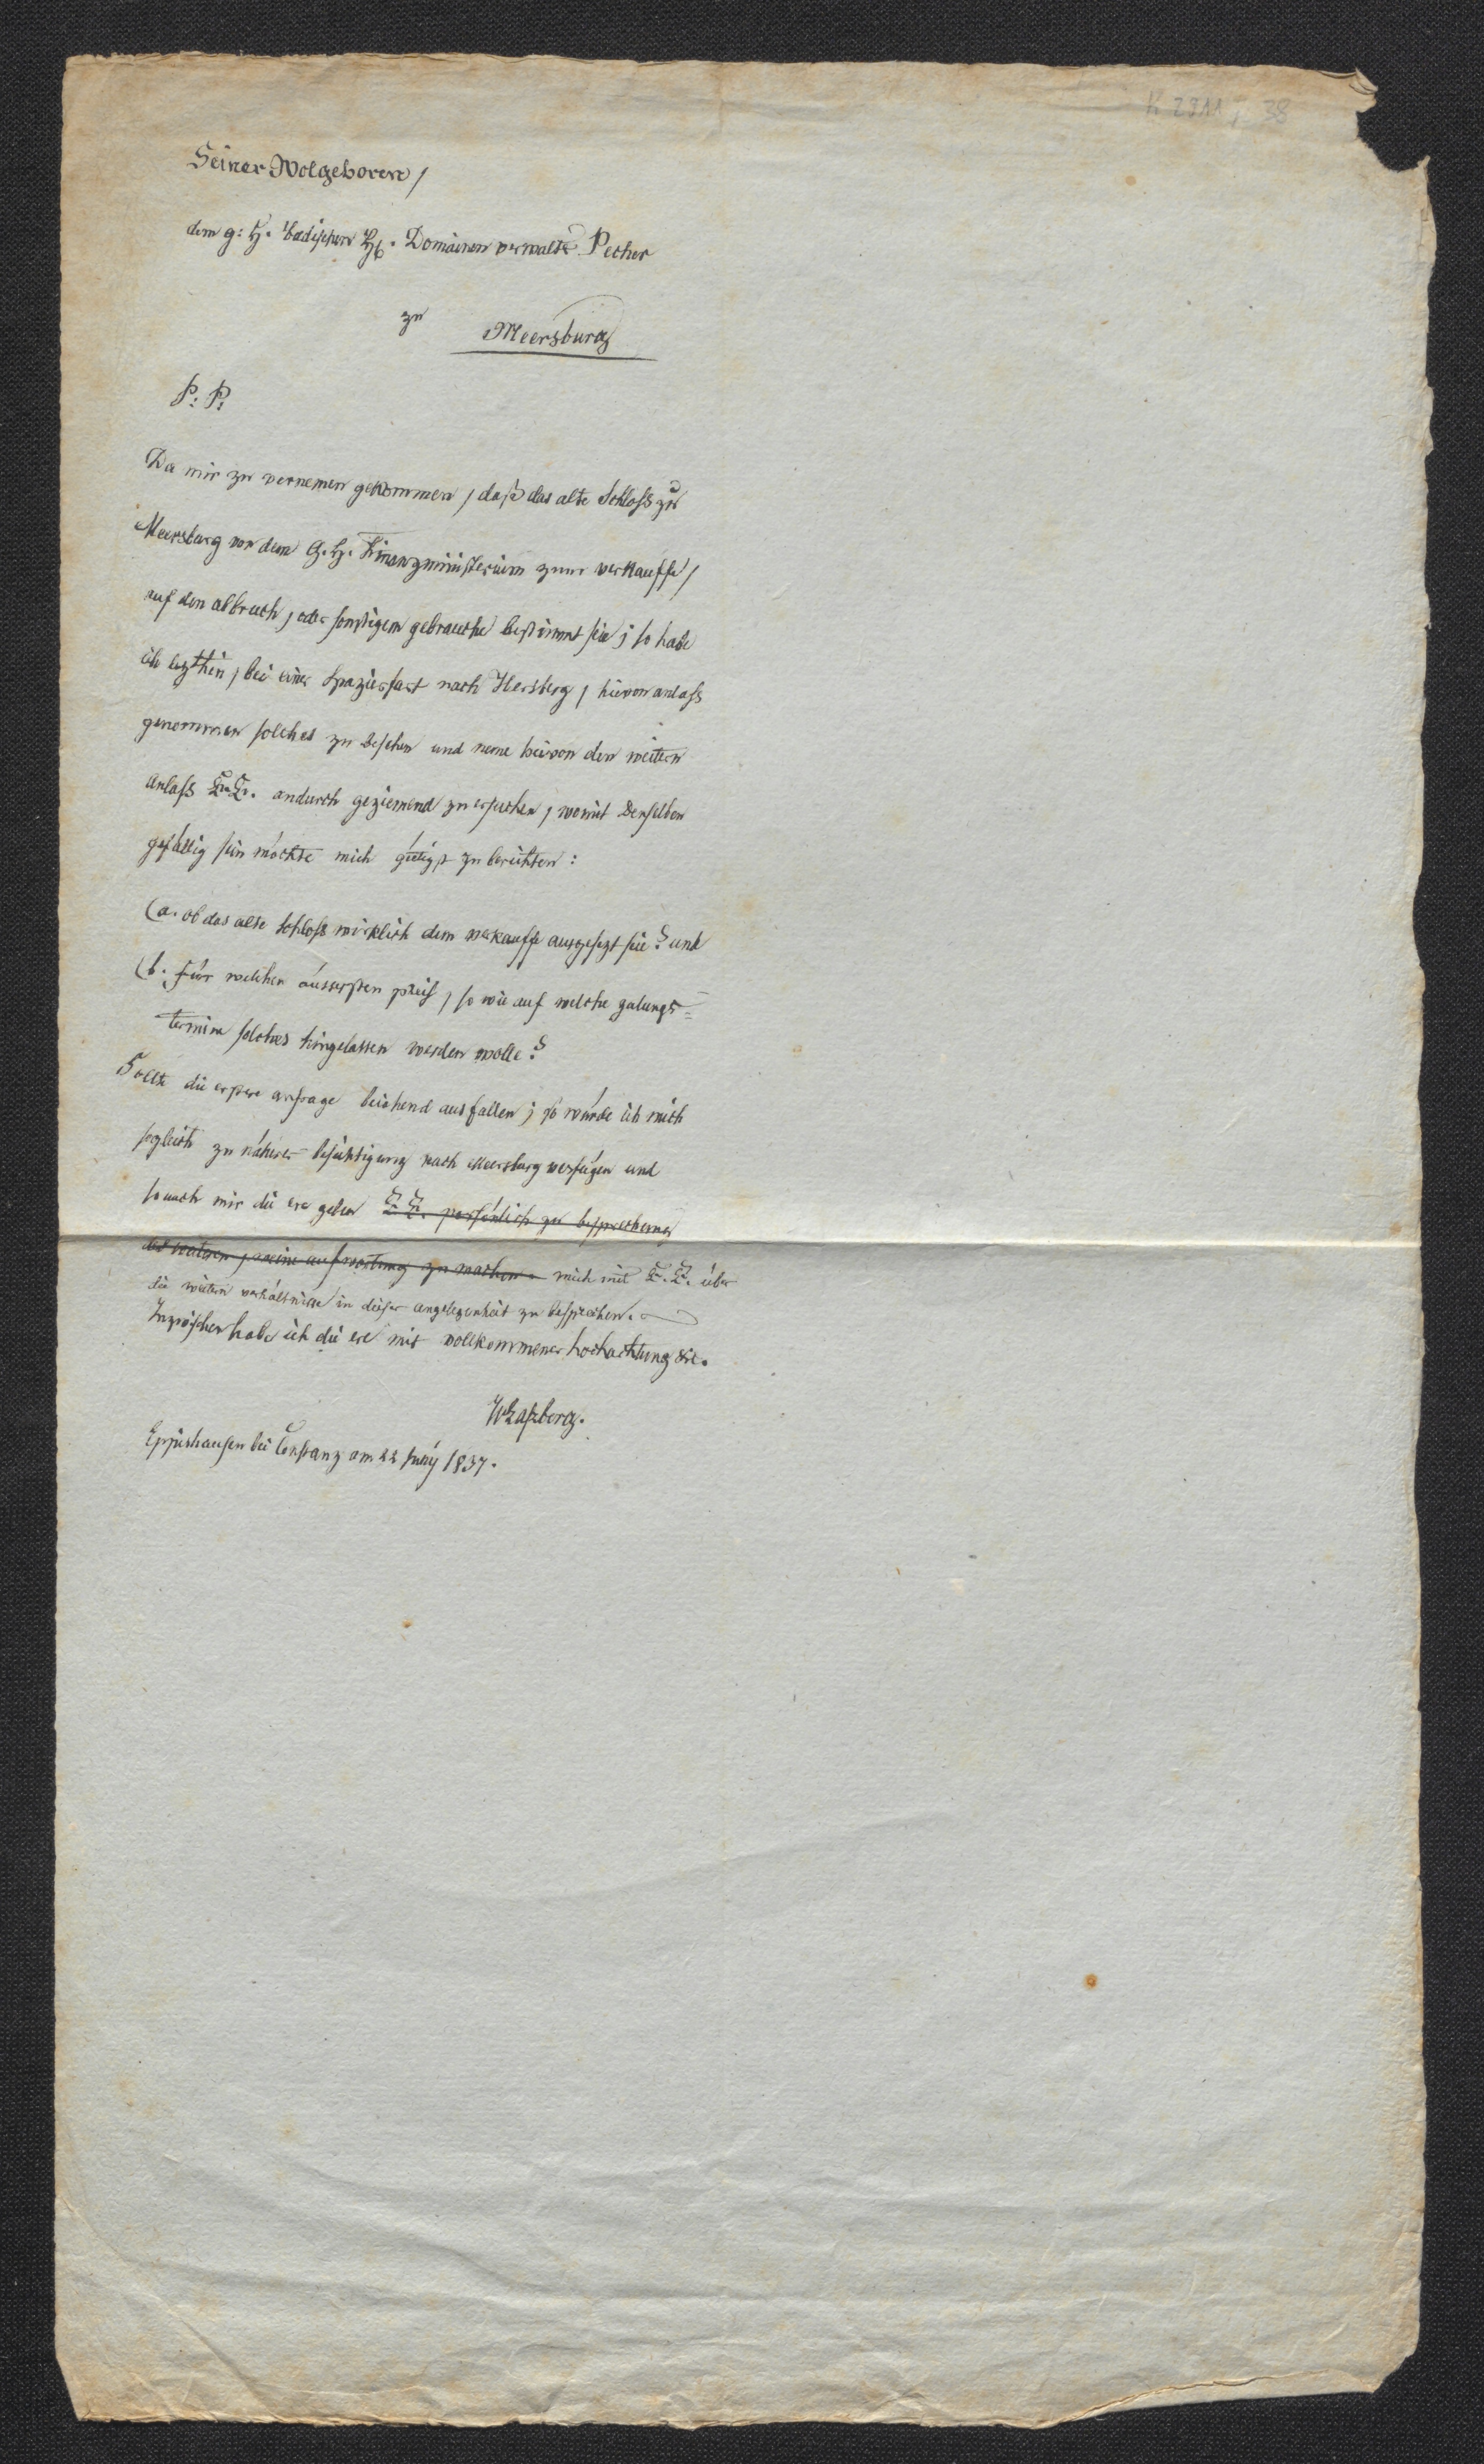 K 2911, 38
Seiner Wolgeboren,
dem g: H. badischen H. Domainen verwalter Pecher
zu Meersburg
P: P:
Da mir zu vernemen gekommen, daß das alte Schloss zu
Meersburg von dem G. H. Finanzministerium zum verkauffe,
auf den abbruch, oder sonstigem gebrauche bestimmt sie; so habe
ich lezthin, bei einer spazierfart nach Hersberg, hievon anlass
genommen solches zu besehen und neme hievon den weitern
anlass E. E. andurch geziemend zu ersuchen, womit Denselben
gefällig sein möchte mich gütigst zu berichten:
(a. ob das alte schloss wirklich dem verkauffe ausgesezt sie? und
(b. für welchen äussersten preis, so wie auf welche zalungs=
termine solches hingelassen werden wolle?
Sollte die erstere anfrage beiahend ausfallen; so würde ich mich
sogleich zu näherer besichtigung nach Meersburg verfügen und
so auch mir die ere geben E. E. persönlich zu besprechung
des weitern, meine aufwartung zu machen. mich mit E. E. über
die weitern verhältnisse in dieser angelegenheit zu besprechen.
Inzwischen habe ich die ere mit vollkommener hochachtung etc.
JvLaßberg.
Eppishausen bei Constanz am 22 Junÿ 1837.